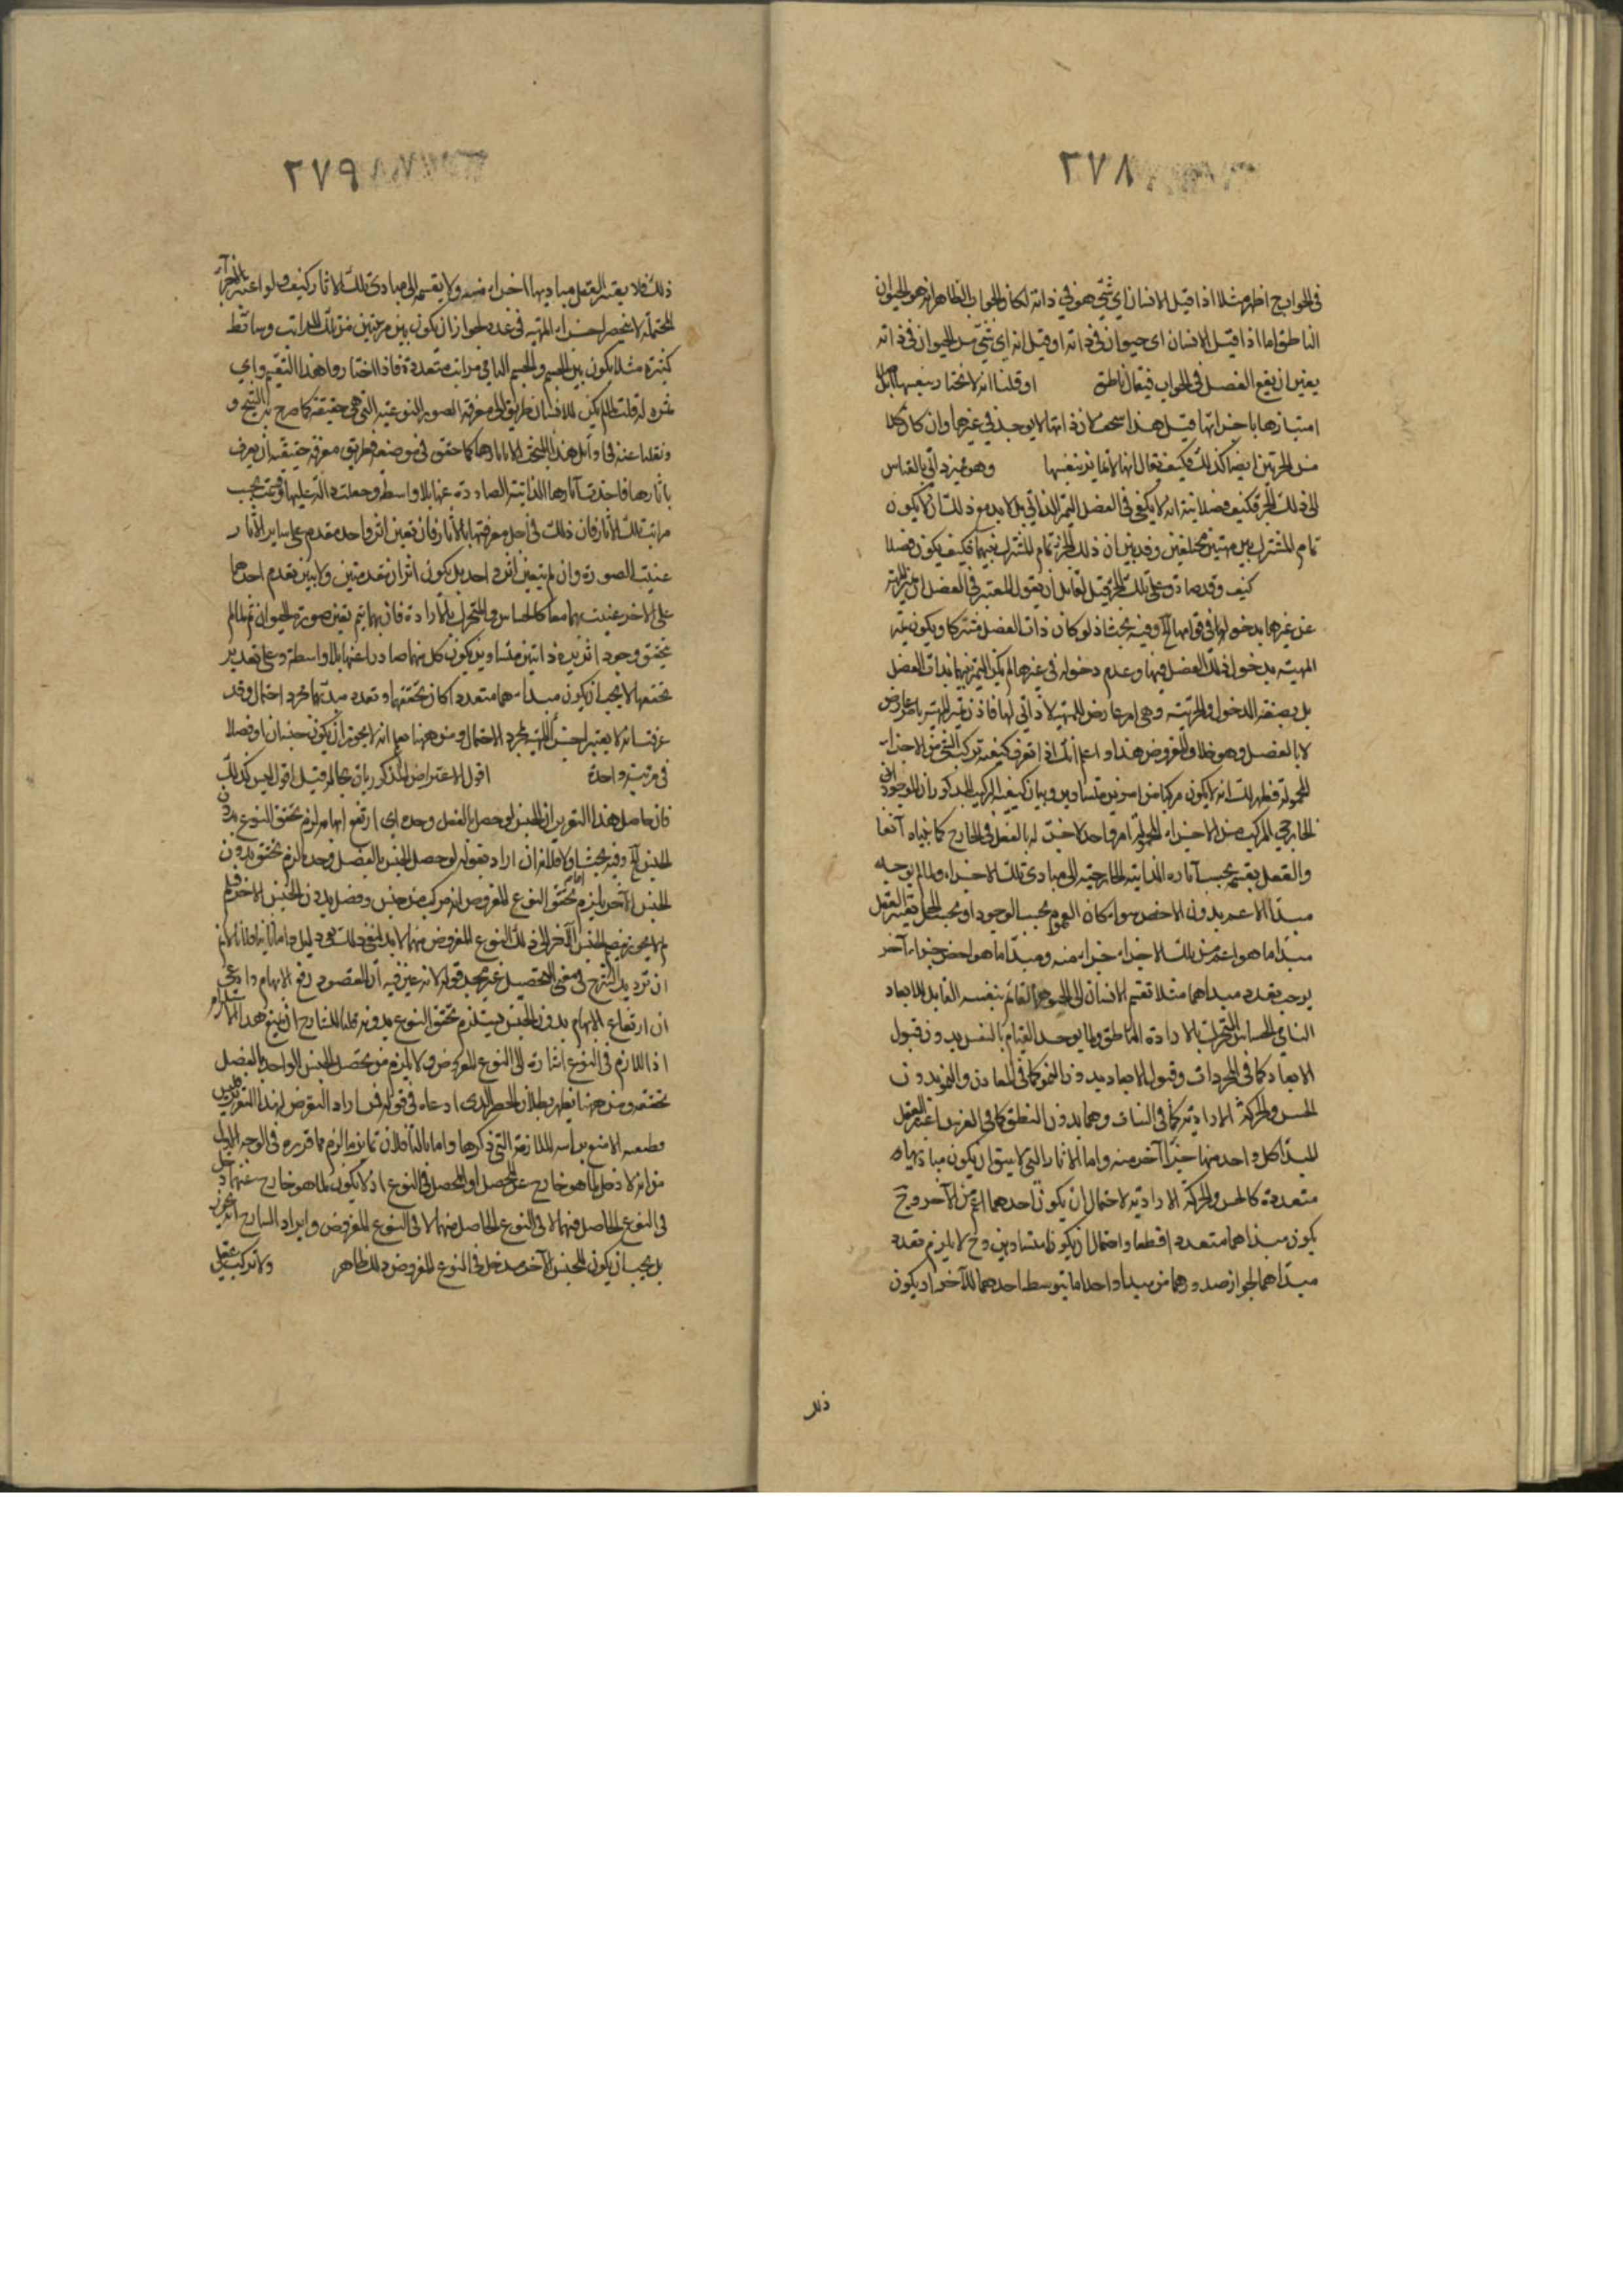 ٢٧٨
في الجواب ح اظهر مثلا اذا قيل الانسان اي شئ هو في ذاته لكان الجواب الظاهر انه هو الحيوان
الناطق اما اذا قيل الانسان اى حيوان في ذاته او قيل انه اي شئ من الحيوان في ذاته
يتعين ان يقع الفصل في الجواب فيقال ناطق او قلنا انه لا نختار
امتيازها باجزائها قيل هذا لان ذاتها لا يوجد في غيرها وان كان
من الجزئين ايضا كذلك فكيف يقال انها لا تمايز بنفسها وهو مميز ذاتي بالقياس
الى ذلك الجزء فكيف فصلا يتر انه لا يكفي في الفصل التميز الذاتي بل لا بد مع ذلك ان لا يكون
تمام المشترك بين مهيتين مختلفتين وقد بين ان ذلك الجزء تمام المشترك بينهما فكيف يكون فصلا
كيف وقد صادق على تلك الجزء قيل لقائل ان يقول المعتبر في الفصل ان يميز المهية
عن غيرها بدخولها في قوامها الخ وفيه بحث اذ لو كان ذات الفصل مشتركا ويكون تميز
المهية بدخول ذلك الفصل فيها وعدم دخوله في غيرها لم يكن التميز بينهما بذات الفصل
بل بصفة الدخول والجزئية وهي امر عارض للمهية لا ذاتي لها فاذن تميز المهية بامر عارض
لا بالفصل وهو خلاف المفروض هذا واعلم انك اذا تعرف كيفية تركب الشئ من الاجزاء
المحمولة فظهر لك انه لا يكون مركبا من امرين متساويين وبيان كيفية التركيب المذكور ان الموجود
الخارجي المركب من الاجزاء المحمولة امر واحد لا جزء له بالفعل في الخارج كما بيناه آنفا
والعقل يقسمه بحسب آثاره الذاتية الخارجية الى مبادى تلك الاجزاء ولما لم يوجد
مبدأ الاعم بدون الاخص سواء كان العموم بحسب الوجود او بحسب الحمل يعتبر العقل
مبدأ ما هو اعم من تلك الاجزاء جزاء منه ومبدأ ما هو اخص جزاء آخر
يوجب تعدد مبداهما مثلا تقسيم الانسان الى الجوهر القائم بنفسه القابل للابعاد
النامي الحساس المتحرك بالارادة الناطق ولما يوجد القيام بالنفس بدون قبول
الابعاد كما في المجردات وقبول الابعاد بدون النمو كما في المعادن والنمو بدون
الحس والحركة الارادية كما في النبات وهما بدون النطق كما في الفرس اعتبر العقل
المبدا كل واحد منها جزأ آخر منه واما الآثار التي لا يسبق ان يكون مباديها
متعددة كالحس والحركة الارادية لاحتمال ان يكون احدهما اعم من الآخر وح
يكون مبداهما متعددا قطعا واحتمال ان يكونا متساويين وح لا يلزم تعدد
مبدأهما لجواز صدورهما من مبدا واحد اما بتوسط احدهما للآخر او يكون
ذلك
٢٧٩
ذلك فلا يعتبر العقل مباديها اجزاء منه ولا يقسمه الى مبادى تلك الآثار كيف ولو اعتبر
المحتملة لا ينحصر اجزاء المهية في عدد لجواز ان يكون بين مرتبتين من تلك المراتب وسائط
كثيرة مثلا يكون بين الجسم والجسم النامي مراتب متعددة فاذا اختاروا هذا التقسيم واي
ثمرة له قلت لما لم يكن للانسان طريق الى معرفة الصور النوعية التي هي حقيقة كما صرح به الشيخ و
نقلنا عنه في اوائل هذا البحث الا باثارها كما حقق في موضعه فطريق معرفة حقيقة ان يعرف
باثارها فاخذت آثارها الذاتية الصادرة عنها بلا واسطة وجعلت دالة عليها وقعت بحسب
مراتب تلك الآثار فان ذلك في اجل معرفتها بالآثار فان تعين اثر واحد مقدم على ساير الآثار
عينت الصورة وان لم يتعين اثر واحد بل يكون اثران متقدمين ولا يبين تقدم احدهما
على الاخر عينت بهما معا كالحساس والمتحرك بالارادة فان بهما يتم تعين صورة الحيوان ثم لما لم
يتحقق وجود اثرين ذاتيين متساويين يكون كل منهما صادرا عنها بلا واسطة وعلى تقدير
تحققها لا يجب ان يكون مبداهما متعددا كان تحققهما وتعدد مبدئهما مجرد احتمال وقد
عرفت انه لا يعتبر اجزاء المهية بمجرد الاحتمال ومن ههنا يعلم انه لا يجوز ان يكون جنسان او فصلا
في مرتبة واحدة اقول الاعتراض المذكور باق بحاله قيل اقول ليس كذلك
فان حاصل هذا التقرير ان الجنس لو حصل بالفصل وحده اي ارتفع ابهامه لزم تحقق النوع بدون
الجنس الخ وفيه بحث اما اولا فلانه ان اراد بقوله لو حصل الجنس بالفصل وحده لزم تحققه بدون
الجنس الآخر يلزم تحقق النوع المفروض انه مركب من جنس وفصل بدون الجنس الاخر فلم
لا يجوز ان يضم الجنس الآخر الى ذلك النوع المفروض منهما لا بد لنفي ذلك من دليل واما ثانيا فلانا لا نم
ان ترديد الشرح في معنى التحصيل غير مجد قوله لانه عين فيه ان المقصود رفع الابهام وادعى
ان ارتفاع الابهام بدون الجنس يستلزم تحقق النوع بدونه قلنا للشارح ان يمنع هذا الاستلزام
اذ اللازم في النوع اشارة الى النوع المفروض ولا يلزم من تحصل الجنس الواحد بالفصل
تحققه ومن ههنا يظهر بطلان الحصر الذى ادعاه في قوله فمن اراد التعرض لهذا التقرير
وطعنه الا منع بداسه الملازمة التي ذكرها واما ثالثا فلان تمايزه ما لزم مما قرره في الوجه الاول
من انه لا دخل لما هو خارج عن المحصل او المحصل في النوع اذ لا يكون لما هو خارج عنهما دخل
في النوع الحاصل منهما لا في النوع الحاصل منهما لا في النوع المفروض وايراد الشارح
بل يجب ان يكون للجنس الآخر مدخل في النوع المفروض وذلك ظاهر ولا تركب عقلي